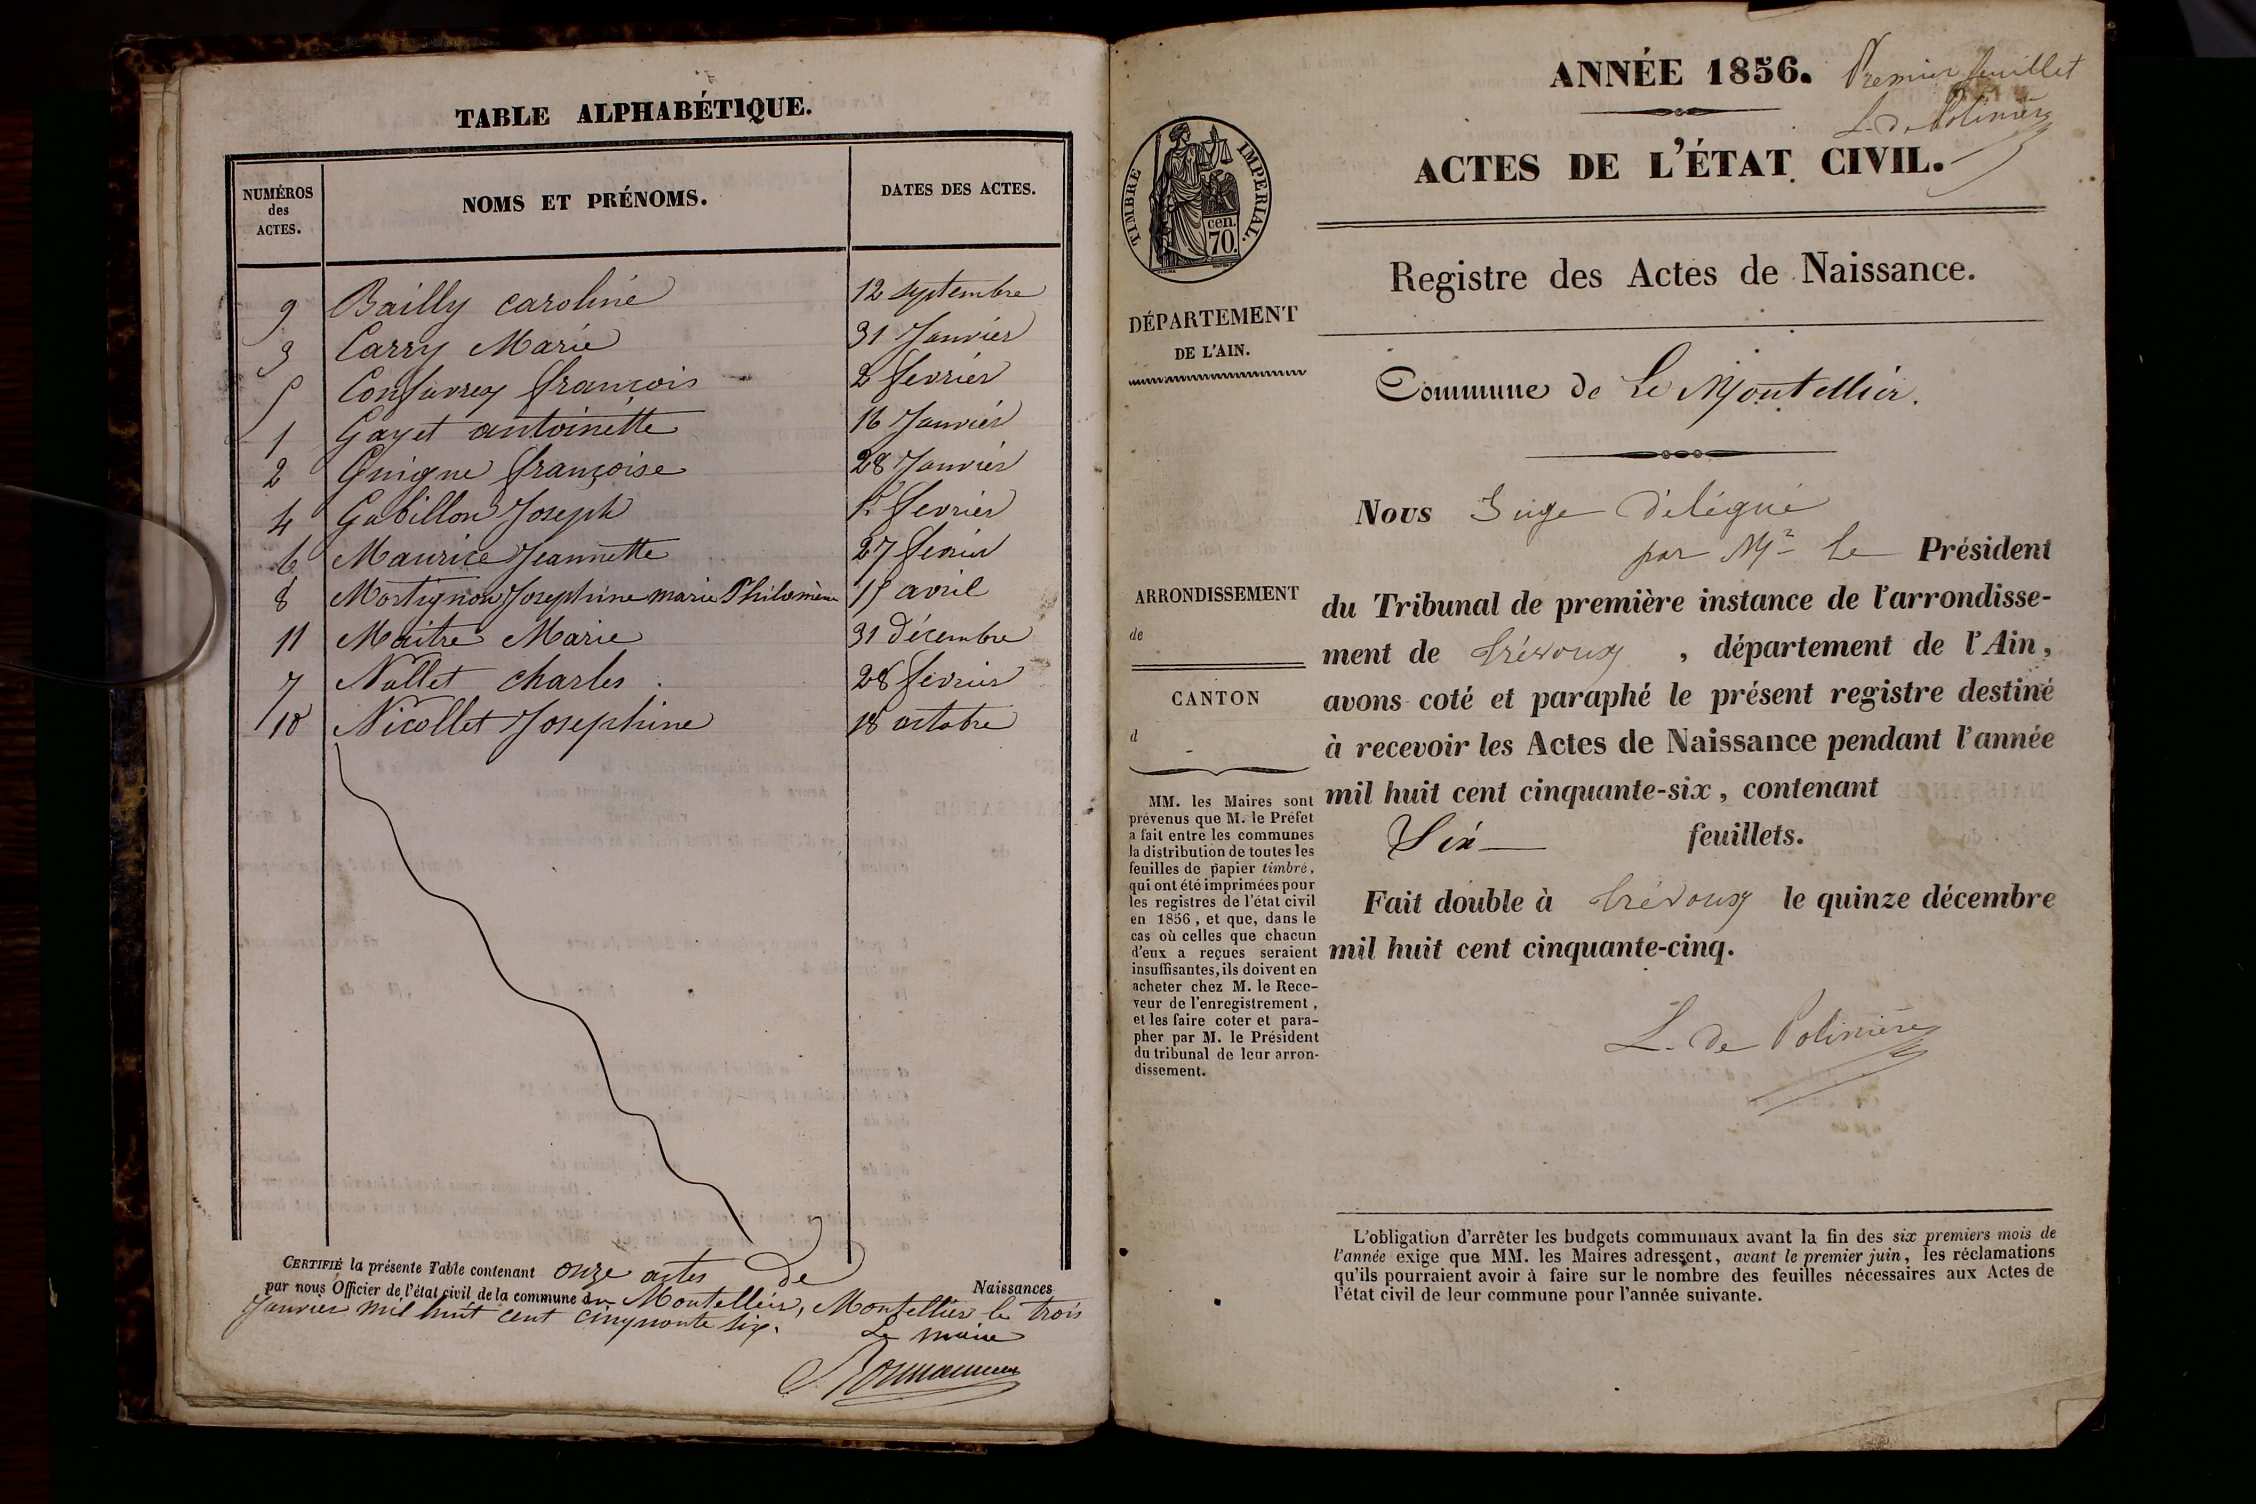 TABLE ALPHABÉTIQUE.
NUMÉROS
des
ACTES.
NOMS ET PRÉNOMS.
DATES DES ACTES.
9 Bailly caroline 12 septembre
3 Carry Marie 31 Janvier
5 Confavrey françois 2 fevrier
1 Gayet antoinette 16 Janvier
2 Guigue françoise 28 Janvier
4 Gabillon Joseph 1er fevrier
6 Maurice Jeannette 27 fevrier
8 Mortignon Josephine marie Philomène 15 avril
11 Maitre Marie 31 décembre
7 Nallet charles 28 fevrier
10 Nicollet Josephine 18 octobre
CERTIFIÉ la présente Table contenant onze actes de
Naissances
par nous Officier de l'état civil de la commune du Montellier, Montellier le trois
Janvier mil huit cent cinquante six.
Le maire
ANNÉE 1856.
Premier feuillet
L. de Polinière
ACTES DE L'ÉTAT CIVIL.
TIMBRE IMPERIAL.
cen.
70.
Registre des Actes de Naissance.
DÉPARTEMENT
DE L'AIN.
Commune de Le Montellier.
Nous Juge délégué
par Mr le Président
ARRONDISSEMENT
de
CANTON
d
du Tribunal de première instance de l'arrondisse-
ment de Trévoux, département de l'Ain,
avons coté et paraphé le présent registre destiné
à recevoir les Actes de Naissance pendant l'année
mil huit cent cinquante-six, contenant
Six feuillets.
Fait double à Trévoux le quinze décembre
mil huit cent cinquante-cinq.
L. de Polinière
MM. les Maires sont
prévenus que M. le Préfet
a fait entre les communes
la distribution de toutes les
feuilles de papier timbré,
qui ont été imprimées pour
les registres de l'état civil
en 1856, et que, dans le
cas où celles que chacun
d'eux a reçues seraient
insuffisantes, ils doivent en
acheter chez M. le Rece-
veur de l'enregistrement,
et les faire coter et para-
pher par M. le Président
du tribunal de leur arron-
dissement.
L'obligation d'arrêter les budgets communaux avant la fin des six premiers mois de
l'année exige que MM. les Maires adressent, avant le premier juin, les réclamations
qu'ils pourraient avoir à faire sur le nombre des feuilles nécessaires aux Actes de
l'état civil de leur commune pour l'année suivante.